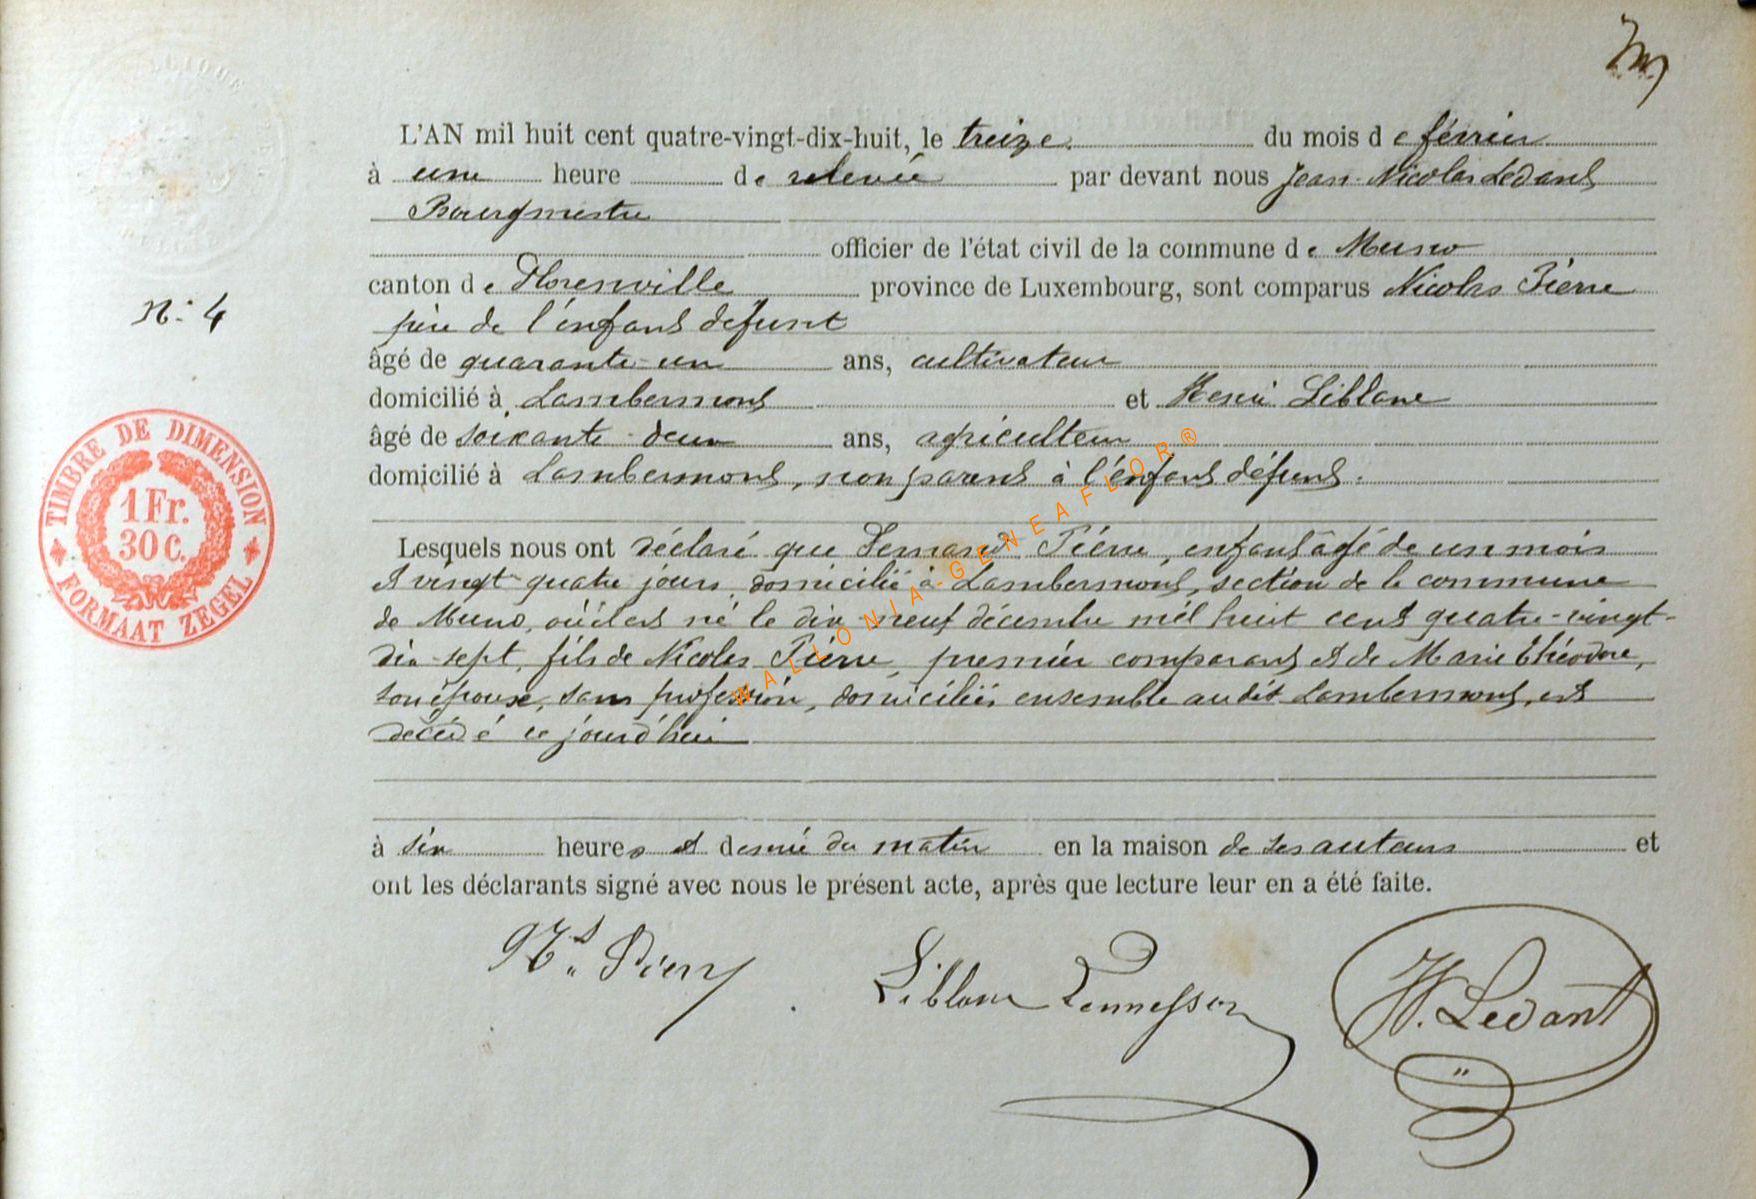 L'AN mil huit cent quatre-vingt-dix-huit, le treize du mois de février
à une heure de relevée par devant nous Jean Nicolas Ledant
Bourgmestre
officier de l'état civil de la commune de Muno
N° 4
canton de Florenville province de Luxembourg, sont comparus Nicolas Piérre
père de l'enfant défunt
âgé de quarante-un ans, cultivateur
domicilié à Lambermont et Henri Liblanc
âgé de soixante-deux ans, agriculteur
domicilié à Lambermont, non parent à l'enfant défunt.
TIMBRE DE DIMENSION
1 Fr.
30 C.
FORMAAT ZEGEL
Lesquels nous ont déclaré que Fernand Piérre, enfant âgé de un mois
et vingt-quatre jours, domicilié à Lambermont, section de la commune
de Muno, où il est né le dix-neuf décembre mil huit cent quatre-vingt-
dix-sept, fils de Nicolas Piérre, premier comparant et de Marie Théodore,
son épouse, sans profession, domiciliés ensemble audit Lambermont, est
décédé ce jourd'hui
à six heures et demie du matin en la maison de ses auteurs et
ont les déclarants signé avec nous le présent acte, après que lecture leur en a été faite.
Ns Pierr
Liblanc Tennesson
N. Ledant
WALLONIA-GENEAFLOR®